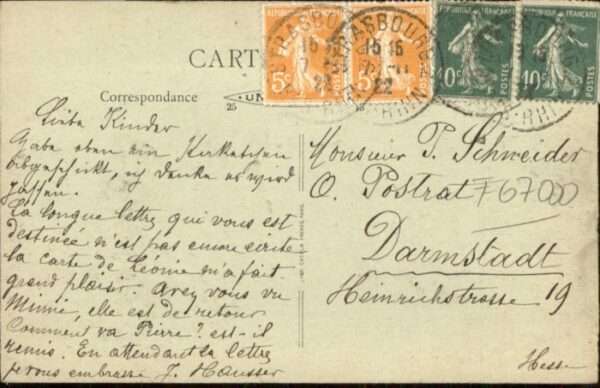 CARTE
Correspondance
RÉPUBLIQUE FRANÇAISE
POSTES
5c
5c
10c
10c
STRASBOURG
STRASBOURG
15 15
22
RHIN
25
Liebe Kinder
Habe eben ein
abgeschickt, ich denke es wird
passen.
La longue lettre qui vous est
destinée n'est pas encore écrite
la carte de Léonie m'a fait
grand plaisir. Avez vous vu
Mimie, elle est de retour
Comment va Pierre? est-il
remis. En attendant la lettre
je vous embrasse J. Hausser
Monsieur P. Schneider
O. Postrat F67000
Darmstadt
Heinrichstrasse 19
Hesse